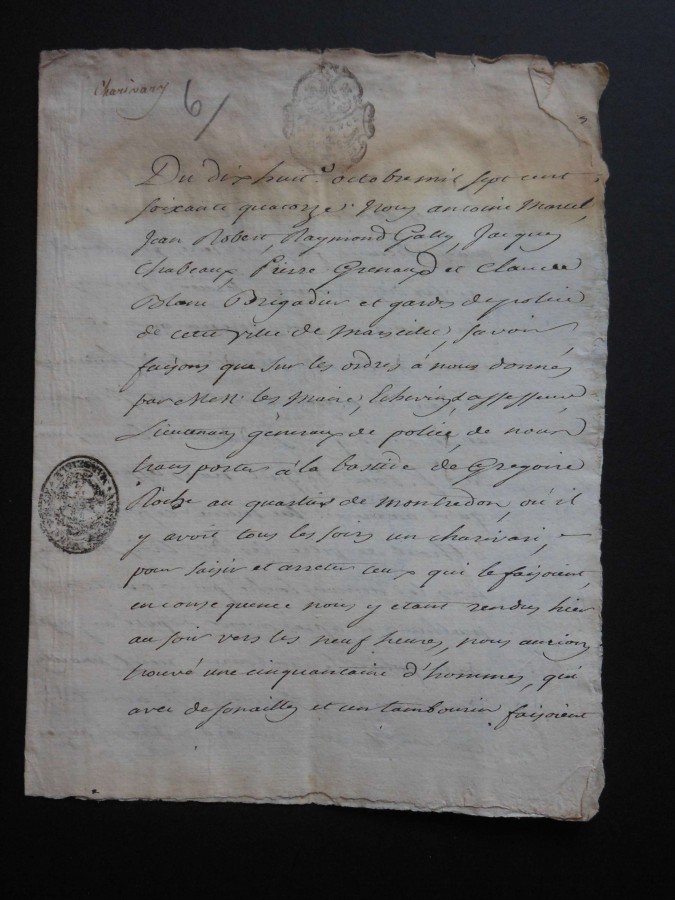 Charivary
6/
Du dix huit octobre mil sept cent
soixante quatorze Nous antoine Marcel,
Jean Robert, Raymond Gally, Jacques
Chabeaux, Pierre Grenaud et Claude
Blanc Brigadier et gardes de police
de cette ville de Marseille, savoir
faisons que sur les ordres à nous donnés
par MM. les Maire, Echevins, assesseur,
Lieutenans généraux de police, de nous
transporter à la bastide de Gregoire
Roche au quartier de montredon, où il
y avoit tous les soirs un charivari,
pour saisir et arreter ceux qui le faisoient,
en consequence nous y etant rendus hier
au soir vers les neuf heures, nous aurions
trouvé une cinquantaine d'hommes, qui
avec de sonailles et un tambourin faisoient